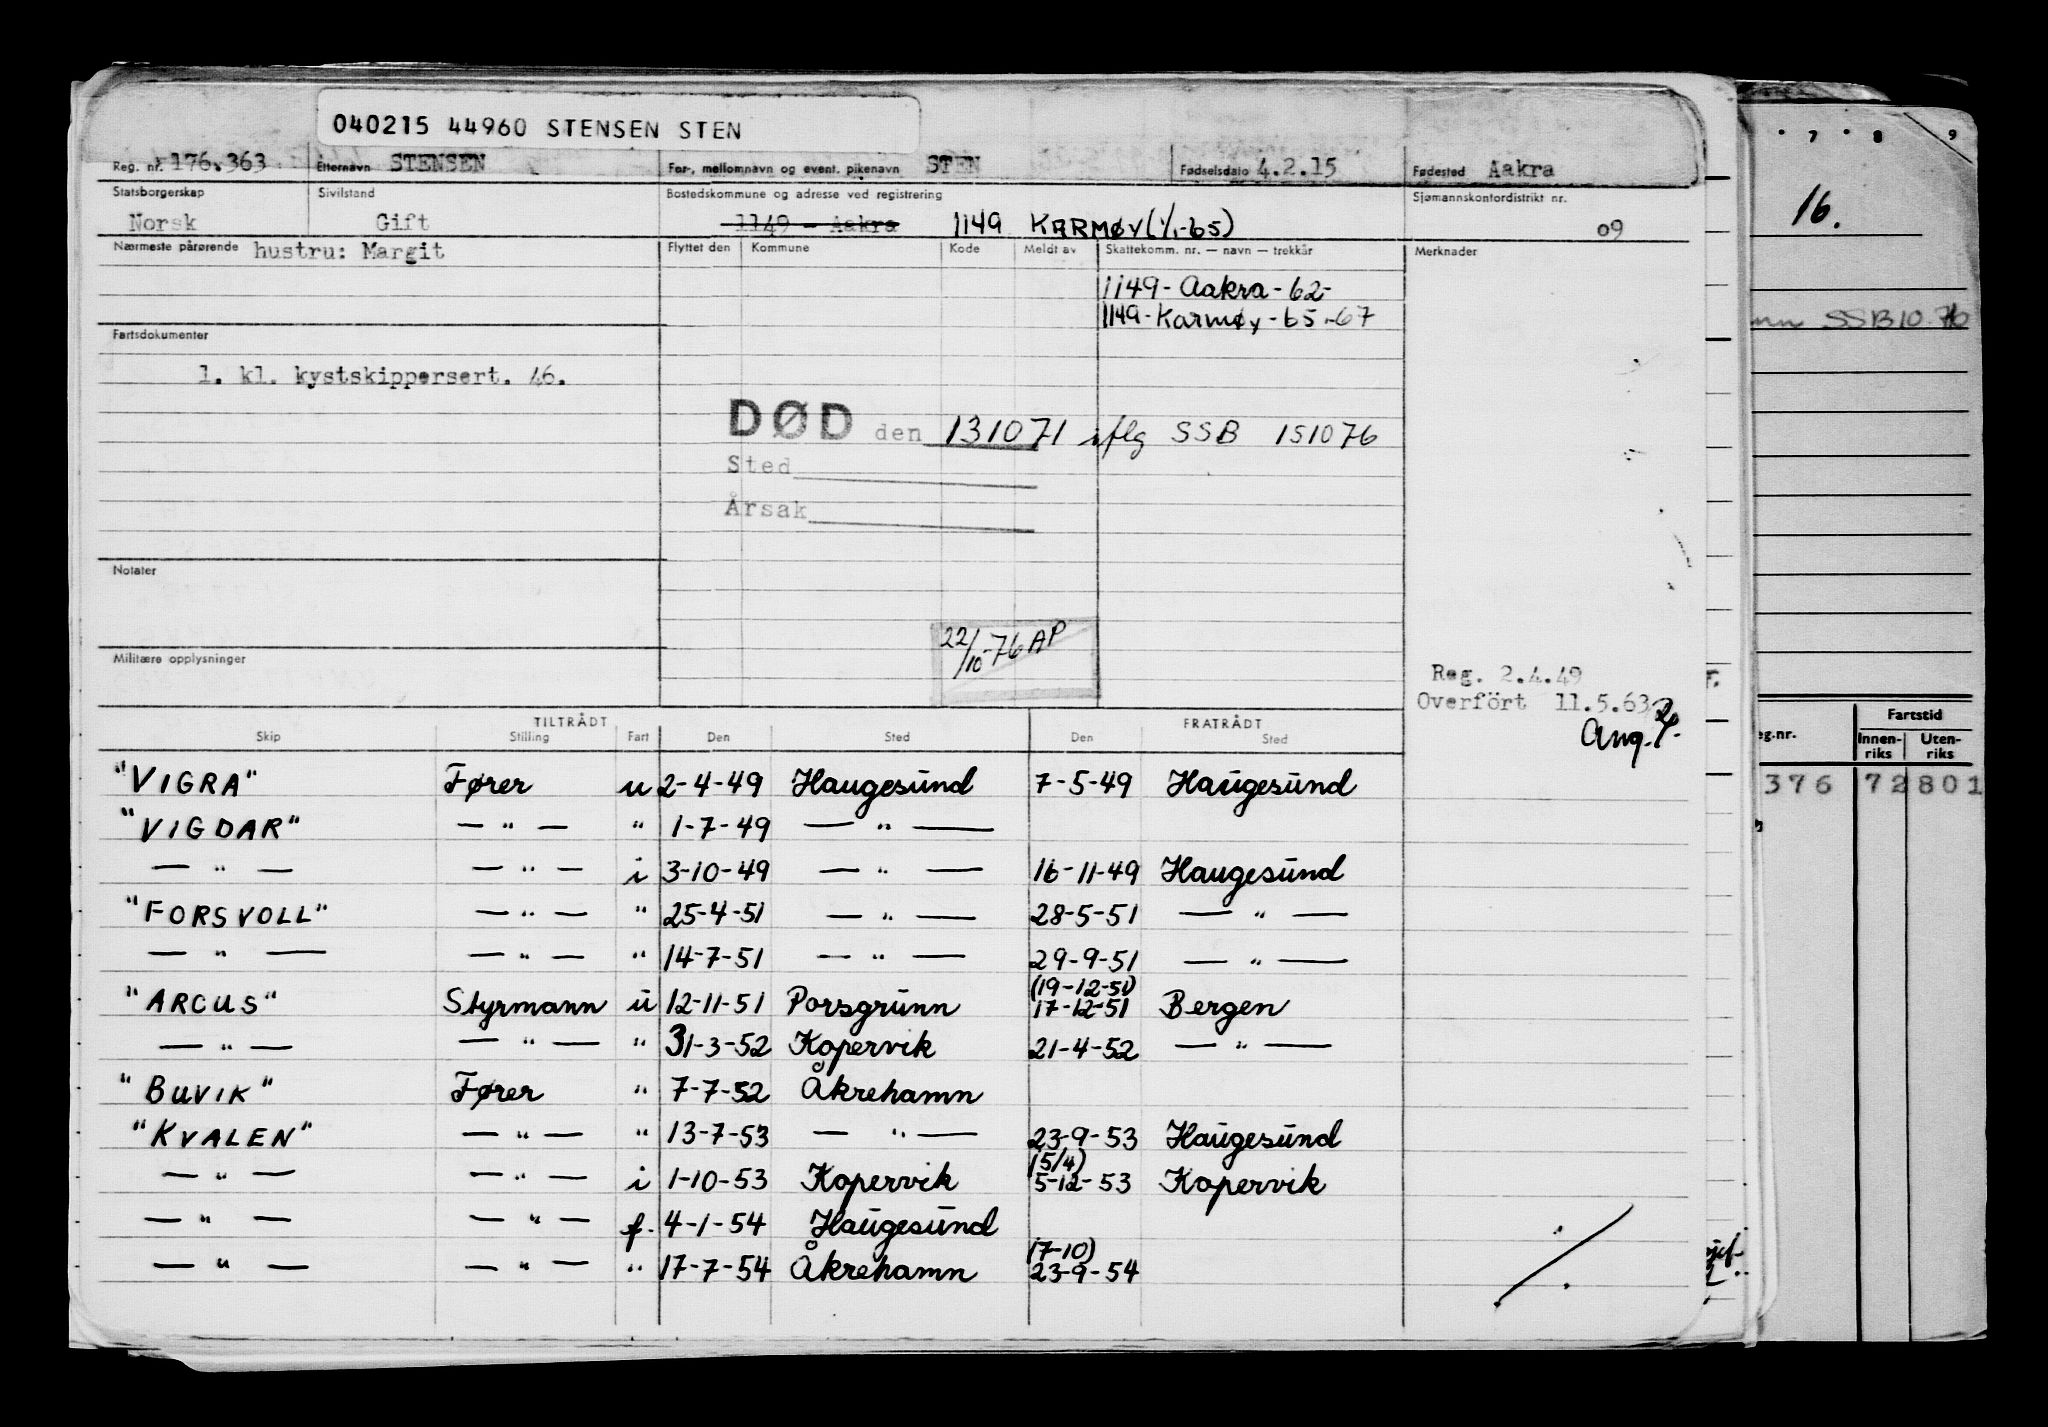 040215 44960 STENSEN STEN
Reg. nr. 176.363 Etternavn STENSEN For-, mellomnavn og event. pikenavn STEN Fødselsdato 4.2.15 Fødested Aakra
Statsborgerskap Sivilstand Bostedskommune og adresse ved registrering Sjømannskontordistrikt nr.
Norsk Gift 1149 - Aakra 1149 KARMØY (1/1-65) 09
Nærmeste pårørende hustru: Margit Flyttet den Kommune Kode Meldt av Skattekomm. nr. — navn — trekkår Merknader
1149 - Aakra - 62-
1149 - Karmøy - 65 -67
Fartsdokumenter
1. kl. kystskippersert. 46.
DØD den 131071 iflg SSB 151076
Sted
Årsak
Notater
22/10-76 AP
Militære opplysninger
Reg. 2.4.49
Overfört 11.5.63
Aug.
TILTRÅDT FRATRÅDT
Skip Stilling Fart Den Sted Den Sted
"VIGRA" Fører u 2-4-49 Haugesund 7-5-49 Haugesund
"VIGDAR" — " — " 1-7-49 — " —
— " — — " — i 3-10-49 — " — 16-11-49 Haugesund
"FORSVOLL" — " — " 25-4-51 — " — 28-5-51 — " —
— " — — " — " 14-7-51 — " — 29-9-51 — " —
(19-12-51)
"ARCUS" Styrmann u 12-11-51 Porsgrunn 17-12-51 Bergen
— " — — " — " 31-3-52 Kopervik 21-4-52 — " —
"BUVIK" Fører " 7-7-52 Åkrehamn
"KVALEN" — " — " 13-7-53 — " — 23-9-53 Haugesund
(5/4)
— " — — " — i 1-10-53 Kopervik 5-12-53 Kopervik
— " — — " — f. 4-1-54 Haugesund
(17-10)
— " — — " — " 17-7-54 Åkrehamn 23-9-54
7 8 9
16.
SSB 10.76
Fartstid
eg.nr. Innen-riks Uten-riks
376 72 801